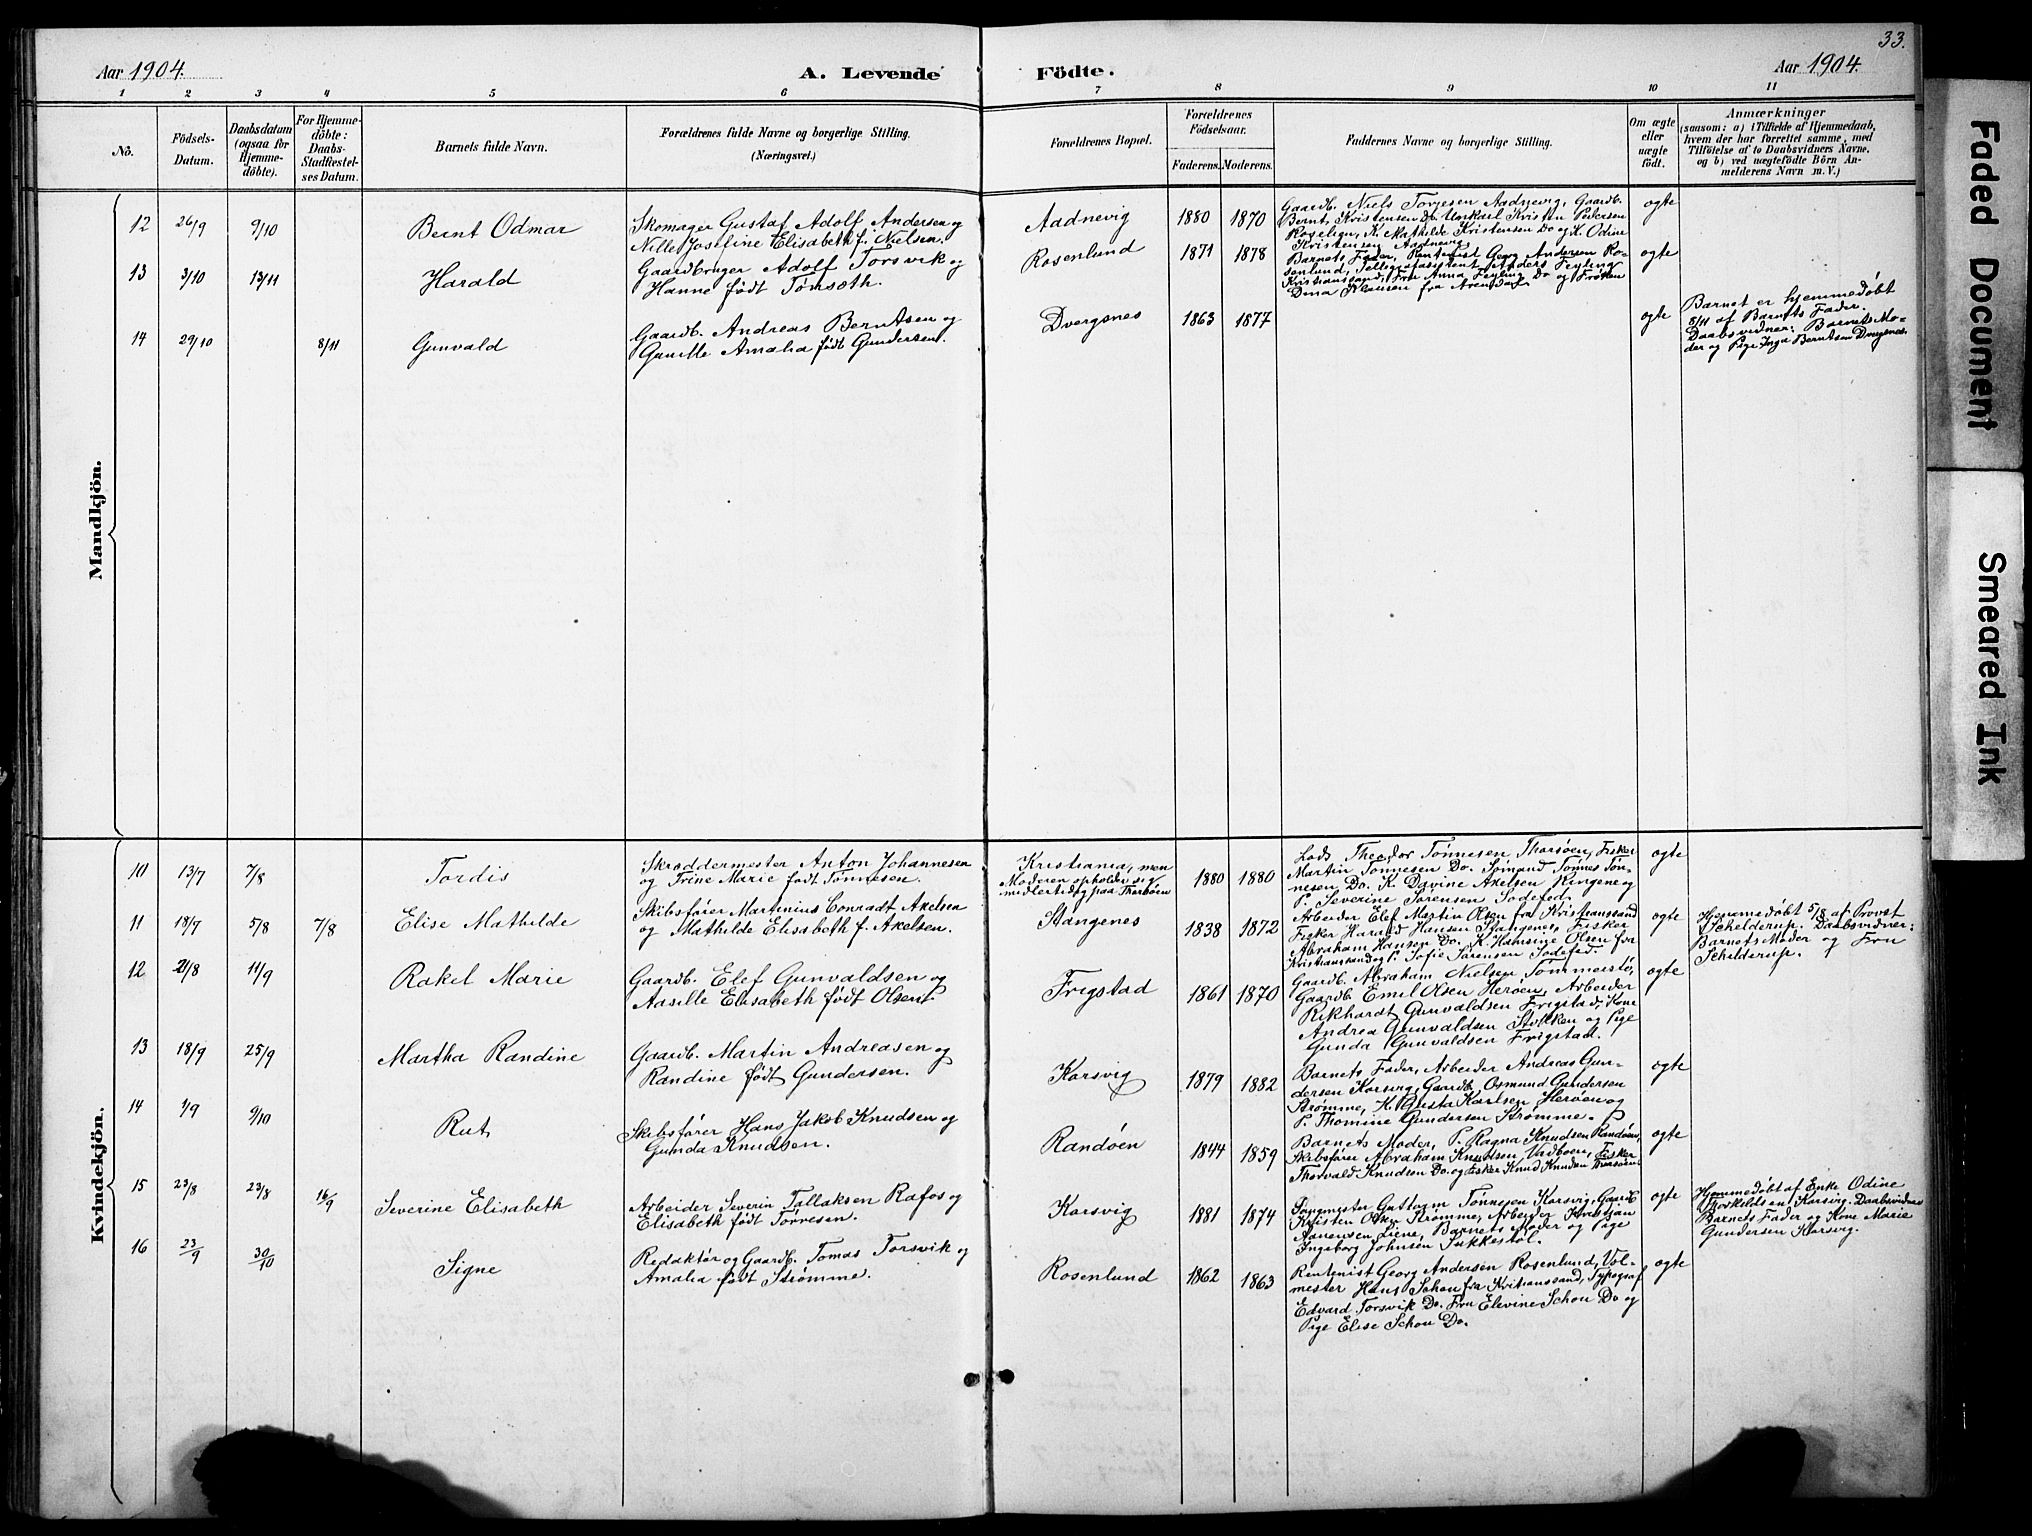 33.
Aar 1904.
A. Levende Födte.
Aar 1904.
1 2 3 4 5 6 7 8 9 10 11
No.
Födsels-
Datum.
Daabsdatum
(ogsaa for
Hjemme-
döbte).
For Hjemme-
döbte:
Daabs-
Stadfæstel-
ses Datum.
Barnets fulde Navn.
Forældrenes fulde Navne og borgerlige Stilling.
(Næringsvei.)
Forældrenes Bopæl.
Forældrenes
Födselsaar.
Faderens. Moderens.
Faddernes Navne og borgerlige Stilling.
Om ægte
eller
uægte
födt.
Anmærkninger
(saasom: a) i Tilfælde af Hjemmedaab,
hvem der har forrettet samme, med
Tilföielse af to Daabsvidners Navne,
og b) ved uægtefödte Börn An-
melderens Navn m. V.)
Mandkjön.
12 26/9 9/10 Bernt Odmar
Skomager Gustaf Adolf Andersen og
Nille Josefine Elisabeth f. Nielsen.
Aadnevig 1880 1870
Gaardb. Niels Torgesen Aadnevig, Gaardb.
Bernt Kristensen Do Ungkarl Kristen Pedersen
Roselien, K. Mathilde Kristensen Do og K. Odine
Kristensen Aadnevig
ægte
13 3/10 13/11 Harald
Gaardbruger Adolf Torsvik og
Hanne født Tømsæth.
Rosenlund 1871 1878
Barnets Fader, Rentenist Georg Andersen Ro-
senlund, Anders Feyling
Kristianssand, Fru Anna Feyling Do og Frøken
Dina Klausen fra Arendal
ægte
14 29/10 8/11 Gunvald
Gaardb. Andreas Berntsen og
Gunille Amalia født Gundersen.
Dvergsnes 1863 1877
ægte
Barnet er hjemmedøbt
5/11 af Barnets Fader.
Daabsvidner: Barnets Mo-
der og Pige Inga Berntsen Dvergsnes.
Kvindekjön.
10 13/7 7/8 Tordis
Skræddermester Anton Johannesen
og Trine Marie født Tønnesen.
Kristiania, men
Moderen opholder sig
midlertidig paa Thersøen
1880 1880
Lods Theodor Tønnesen, Thorsøen, Fisker
Martin Tønnesen Do. Sømand Tønnes Tøn-
nesen Do. K. Davine Akelsen Kingene og
P. Severine Sørensen Sodefed.
ægte
11 18/7 5/8 7/8 Elise Mathilde
Skibsfører Martinius Conradt Akelsen
og Mathilde Elisabeth f. Akelsen.
Stangenes 1838 1872
Arbeider Elef Martin Olsen fra Kristianssand
Fisker Harald Hansen Stangenes, Fisker
Abraham Hansen Do. K. Hansine Olsen fra
Kristianssand og P. Sofie Sørensen Sodefed.
ægte
Hjemmedøbt 5/8 af Provst
Schelderup. Daabsvidner:
Barnets Moder og Fru
Schilderup.
12 21/8 11/9 Rakel Marie
Gaardb. Elef Gunvaldsen og
Aasille Elisabeth født Olsen.
Frigstad 1861 1870
Gaardb. Abraham Nielsen Tømmerstø,
Gaardb. Emil Olsen Herøen, Arbeider
Rikhardt Gunvaldsen Frigstad, Kone
Andrea Gunvaldsen Stokken og Pige
Gunda Gunvaldsen Frigstad.
ægte
13 18/9 25/9 Martha Randine
Gaardb. Martin Andreasen og
Randine født Gundersen.
Korsvig 1879 1882
Barnets Fader, Arbeider Andreas Gun-
dersen Korsvig, Gaardb. Osmund Gundersen
Strømme, K. Gusta Karlsen Herøen og
P. Thomine Gundersen Strømme.
ægte
14 1/9 9/10 Rut
Skibsfører Hans Jakob Knudsen og
Gunda Knudsen.
Randøen 1844 1859
Barnets Moder, P. Ragna Knudsen Randøen,
Skibsfører Abraham Knudsen, Vadboen, Fisker
Thorvald Knudsen Do. og Fisker Knud Knudsen Thersøen
ægte
15 23/8 23/8 16/9 Severine Elisabeth
Arbeider Severin Tallaksen Rafos og
Elisabeth født Torresen.
Korsvig 1881 1874
Guttorm Tønnesen Korsvig, Gaardb
Kristen Olsen Strømme, Arbeider Kristian
Aanensen Liene, Barnets Moder og Pige
Ingeborg Johnsen Sukkestøl.
ægte
Hjemmedøbt af Enke Odine
Thorkildsen Korsvig. Daabsvidner
Barnets Fader og Kone Marie
Gundersen Korsvig.
16 23/9 30/10 Signe
Redaktør og Gaardb. Tomas Torsvik og
Amalia født Strømme.
Rosenlund 1862 1863
Rentenist Georg Andersen Rosenlund, Vol-
mester Hans Schou fra Kristianssand, Typograf
Edvard Torsvik Do. Fru Elevine Schou Do og
Pige Elise Schou Do.
ægte
Faded Document
Smeared Ink